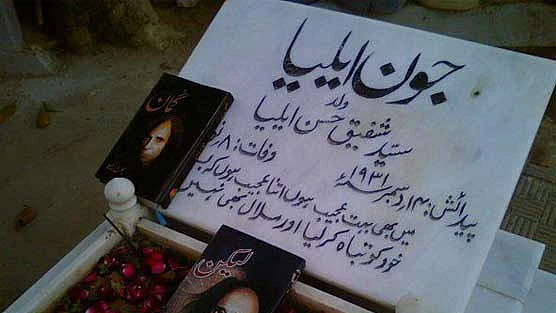 جون ایلیا
ولد
سید شفیق حسن ایلیا
پیدائش: ۱۴ دسمبر ۱۹۳۱ء
وفات: ۸
میں بھی بہت عجیب ہوں اتنا عجیب ہوں کہ بس
خود کو تباہ کر لیا اور ملال بھی نہیں
گمان
لیکن